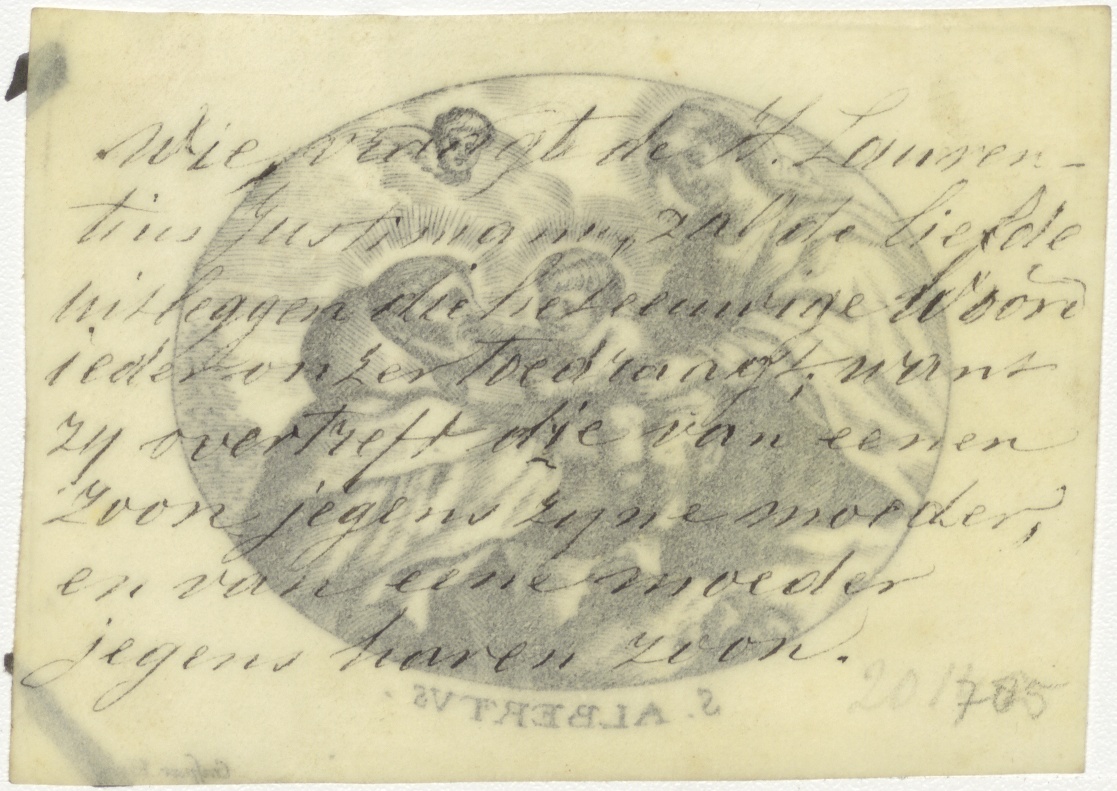 Wie, vraagt de H. Lauren-
tius Justiniani, zal de liefde
uitleggen die het eeuwige Woord
ieder onzer toedraagt; want
zy overtreft die van eenen
zoon jegens zyne moeder,
en van eene moeder
jegens haren zoon.
S. ALBERTVS.